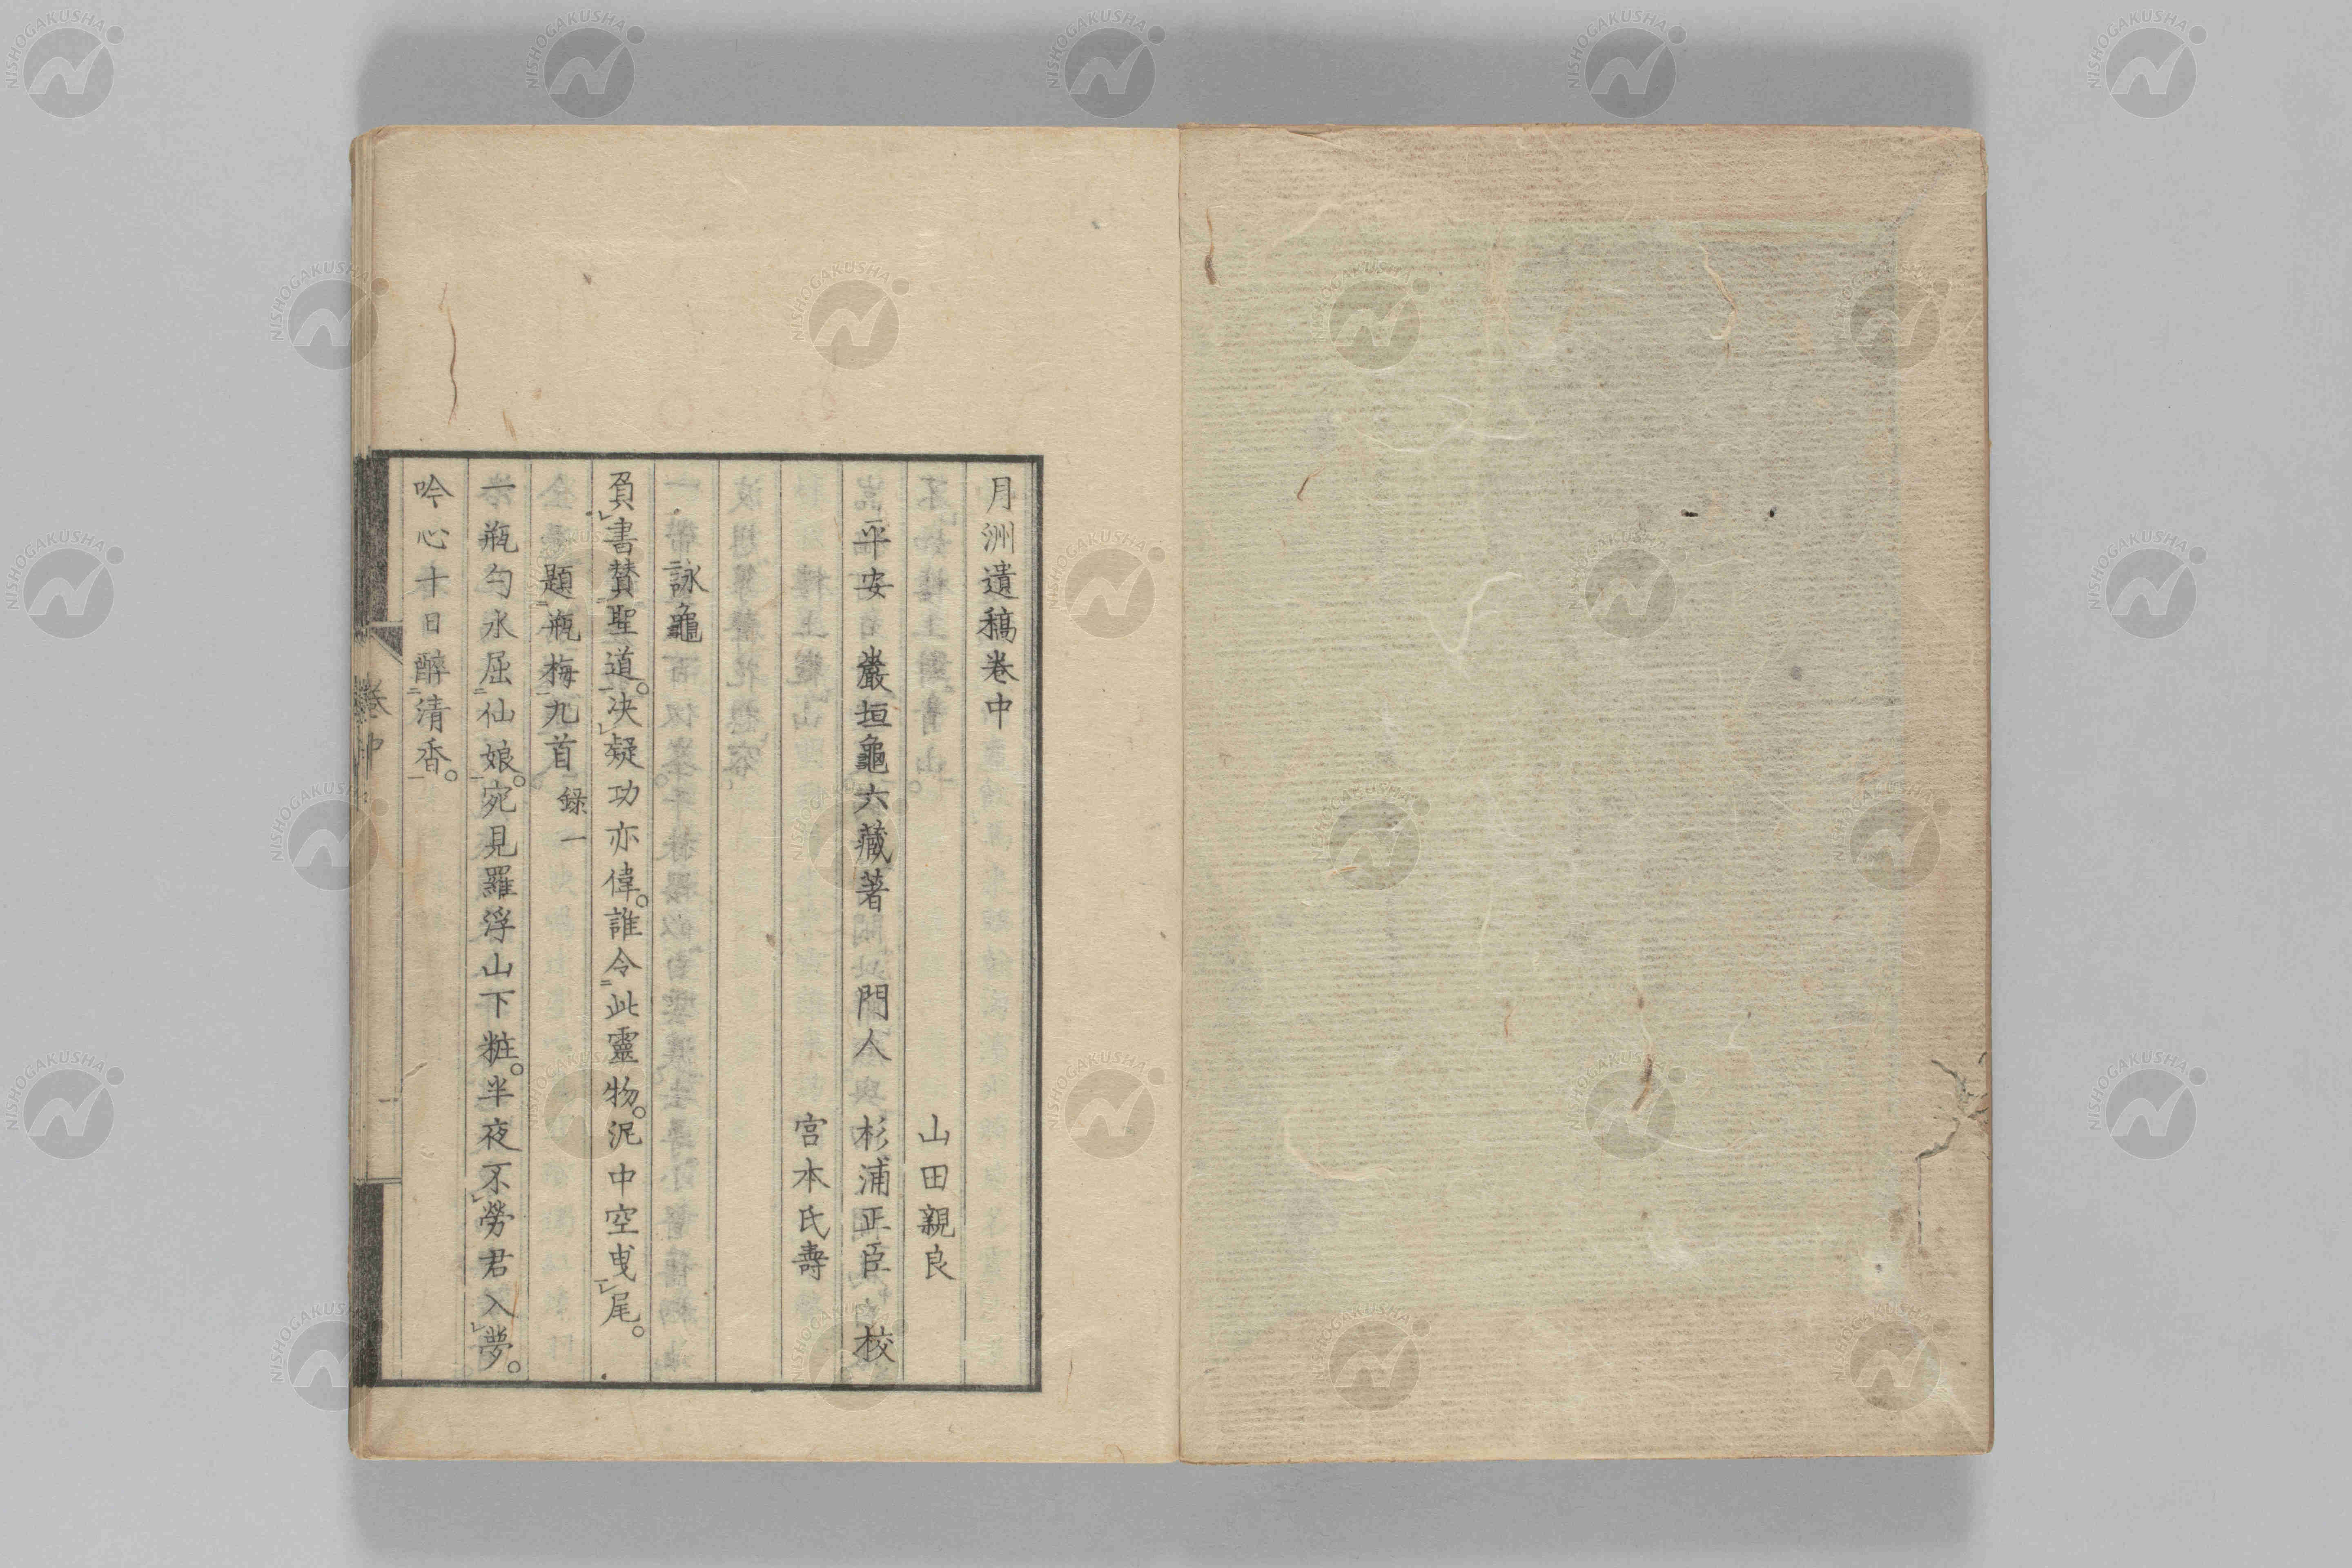 月洲遺稿卷中
山田親良
平安 巖垣龜六藏著 門人 杉浦正臣 校
宮本氏壽
詠龜
負書賛聖道。决疑功亦偉。誰令此靈物。泥中空曳尾。
題瓶梅九首 録一
一瓶勺水屈仙娘。宛見羅浮山下粧。半夜不勞君入夢。
吟心十日醉清香。
卷中
一
NISHOGAKUSHA